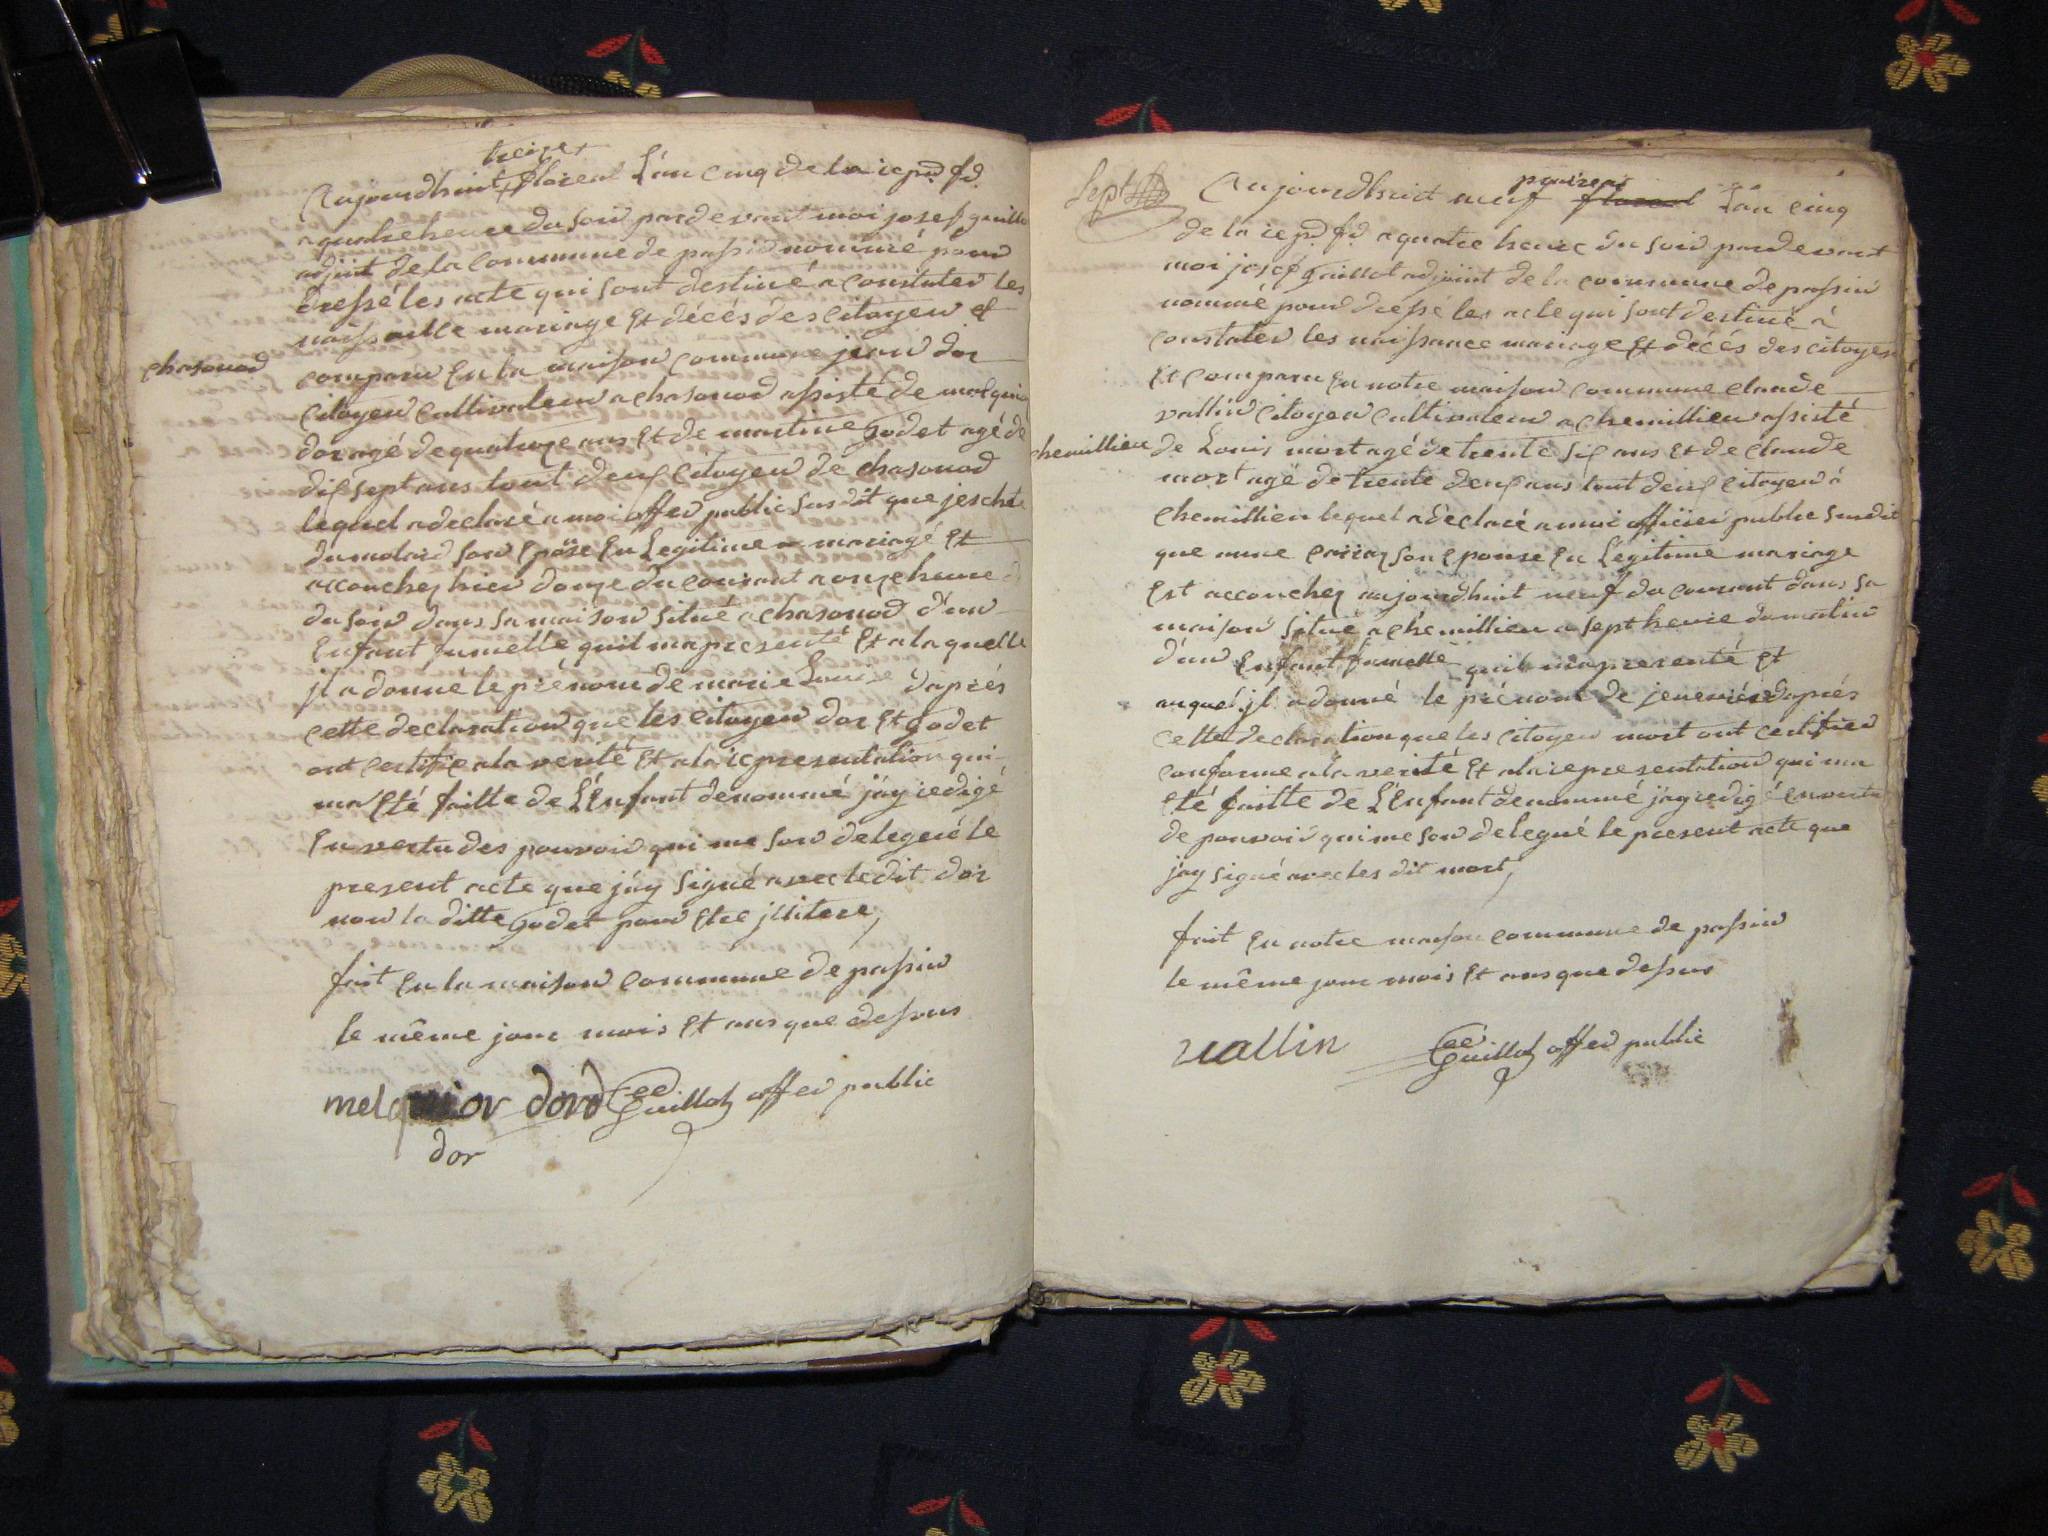 treize
Aujourdhuit floreal L'an cinq de la rep. fd.
a quatre heure du soir pardevant moi josef guillo
adjint de la commune de passin nommé pour
dressé les acte qui sont destiné a constater les
naissance mariage Et décés des citoyen et
chasonod
comparu En la maison commune jean dor
citoyen cultivateur a chasonod assisté de melquior
dor agé de quatorze ans Et de martine godet agé de
dix sept ans tout deux citoyen de chasonod
lequel a declaré a moi offier public susdit que
dumolard son Epose En Legitime mariagé Et
accouchez hier douze du courant a onze heure
du soir dans sa maison situé a chasonod d'un
Enfant fumelle quil mapresenté Et a laquelle
jl a donné le prénom de marie Louise daprés
cette declaration que les citoyen dor Et godet
ont certifie a la verité Et a la representation qui
ma Eté faitte de L'Enfant denommé j'ay redigé
En vertu des pouvoir qui me son delegué le
present acte que j'ay signé avec ledit dor
non la ditte godet pour Etre jllitere,
fait En la maison commune de passin
le même jour mois Et ans que dessus
melquior dord Guillot offier public
dor
Sept
prairial
Aujourdhuit neuf floreal L'an cinq
de la rep. fd. a quatre heure du soir pardevant
moi josef guillot adjoint de la commune de passin
nommé pour dressé les acte qui sont destiné a
constater les naissance mariage Et décés des citoyen
Et comparu En notre maison commune claude
vallin citoyen cultivateur a chemillieu assisté
chemillieu
de Louis mort agé de trente six ans Et de claude
mort agé de trente deux ans tout deux citoyen a
chemillieu lequel a déclaré a moi officier public susdit
que anne son Epouse En Légitime mariage
Est accouchez aujourdhuit neuf du courant dans sa
maison situé a chémillieu a sept heure du matin
d'un Enfant fumelle quil mapresenté Et
auquel jl a donné le prénom de jeneviéve daprés
cette declaration que les citoyen mort ont certifier
conforme a la verité Et a la representation qui ma
Eté faitte de L'Enfant denommé j'ay redigé En vertu
de pouvoir qui me son delegué le present acte que
j'ay signé avec les dit mort,
fait En notre maison commune de passin
le même jour mois Et ans que dessus
vallin Guillot offier public